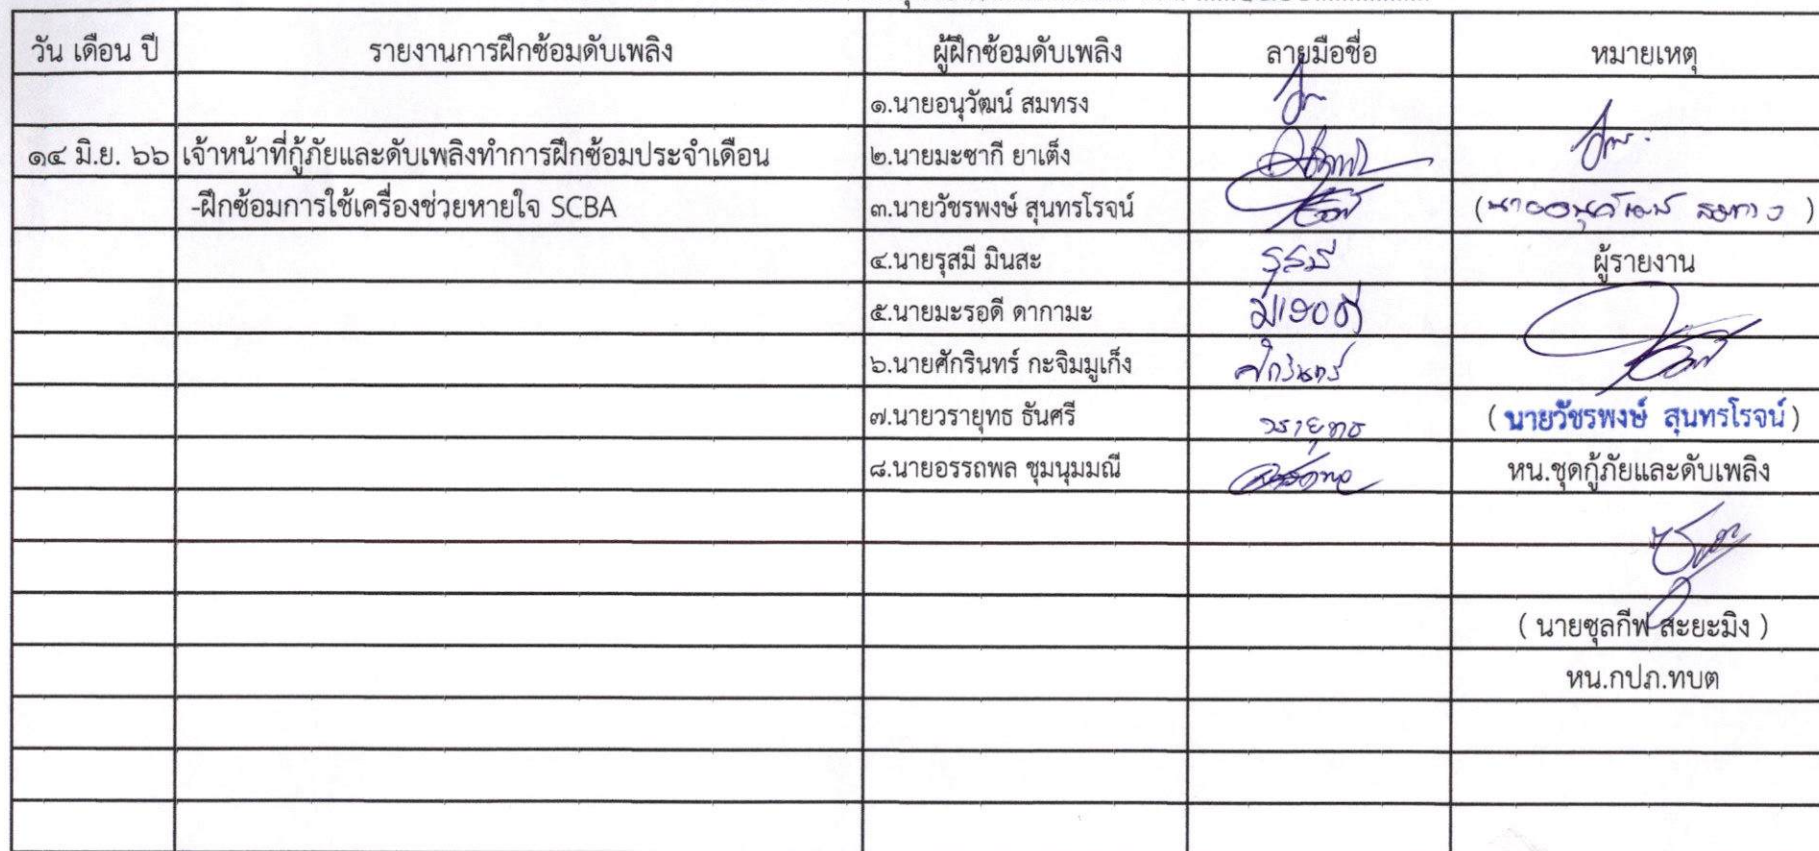 วัน เดือน ปี รายงานการฝึกซ้อมดับเพลิง ผู้ฝึกซ้อมดับเพลิง ลายมือชื่อ หมายเหตุ
๑.นายอนุวัฒน์ สมทรง
๑๔ มิ.ย. ๖๖ เจ้าหน้าที่กู้ภัยและดับเพลิงทำการฝึกซ้อมประจำเดือน ๒.นายมะซากี ยาเต็ง
-ฝึกซ้อมการใช้เครื่องช่วยหายใจ SCBA ๓.นายวัชรพงษ์ สุนทรโรจน์ (นายอนุวัฒน์ สมทรง)
๔.นายรุสมี มินสะ รุสมี ผู้รายงาน
๕.นายมะรอดี ดากามะ มะรอดี
๖.นายศักรินทร์ กะจิมมูเก็ง ศักรินทร์
๗.นายวรายุทธ ธันศรี วรายุทธ (นายวัชรพงษ์ สุนทรโรจน์)
๘.นายอรรถพล ชุมนุมมณี หน.ชุดกู้ภัยและดับเพลิง
( นายซุลกีฟ สะยะมิง )
หน.กปภ.ทบต